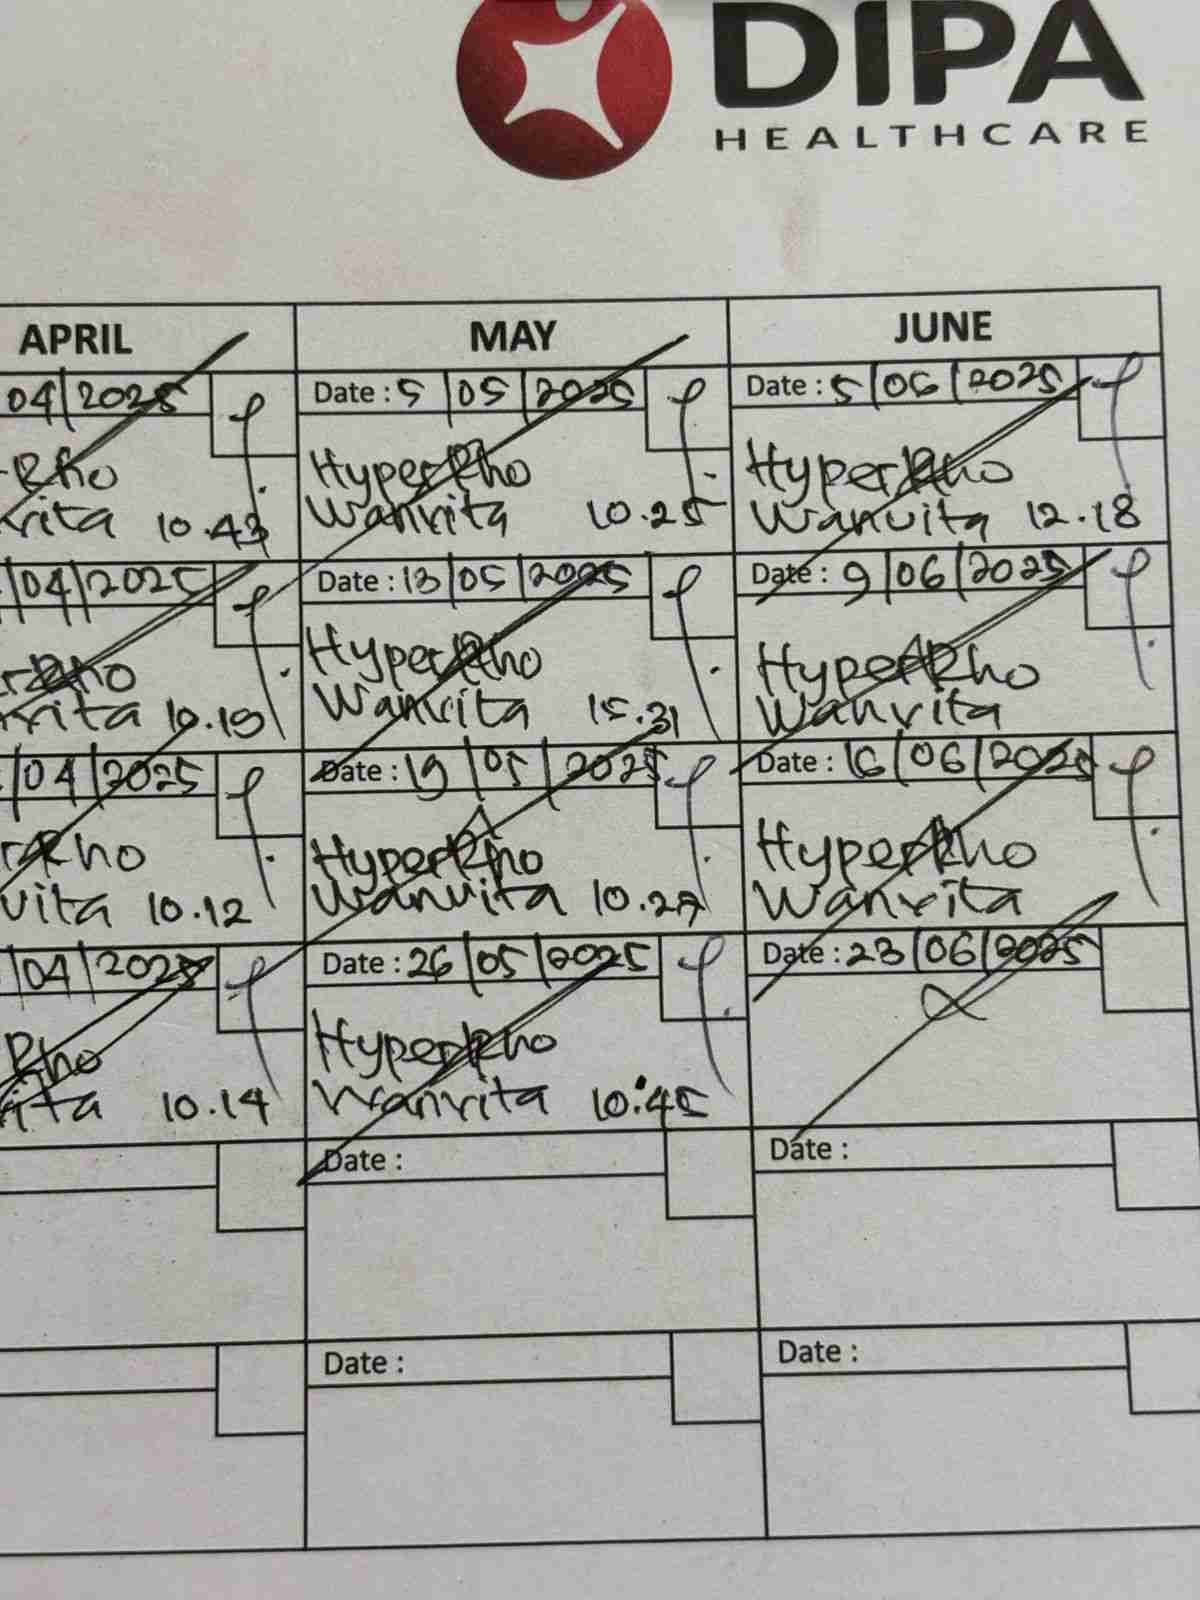 DIPA
HEALTHCARE
APRIL
MAY
JUNE
04/2025
Rho
rita 10.43
Date : 5/05/2025
HyperRho
Wanvita 10.25
Date : 5/06/2025
HyperRho
Wanvita 12.18
/04/2025
rRho
rita 10.19
Date : 13/05/2025
HyperRho
Wanvita 15.31
Date : 9/06/2025
HyperRho
Wanvita
/04/2025
rRho
vita 10.12
Date : 19/05/2025
HyperRho
Wanvita 10.27
Date : 16/06/2025
HyperRho
Wanvita
/04/2025
Rho
ita 10.14
Date : 26/05/2025
HyperRho
Wanvita 10.45
Date : 23/06/2025
Date :
Date :
Date :
Date :